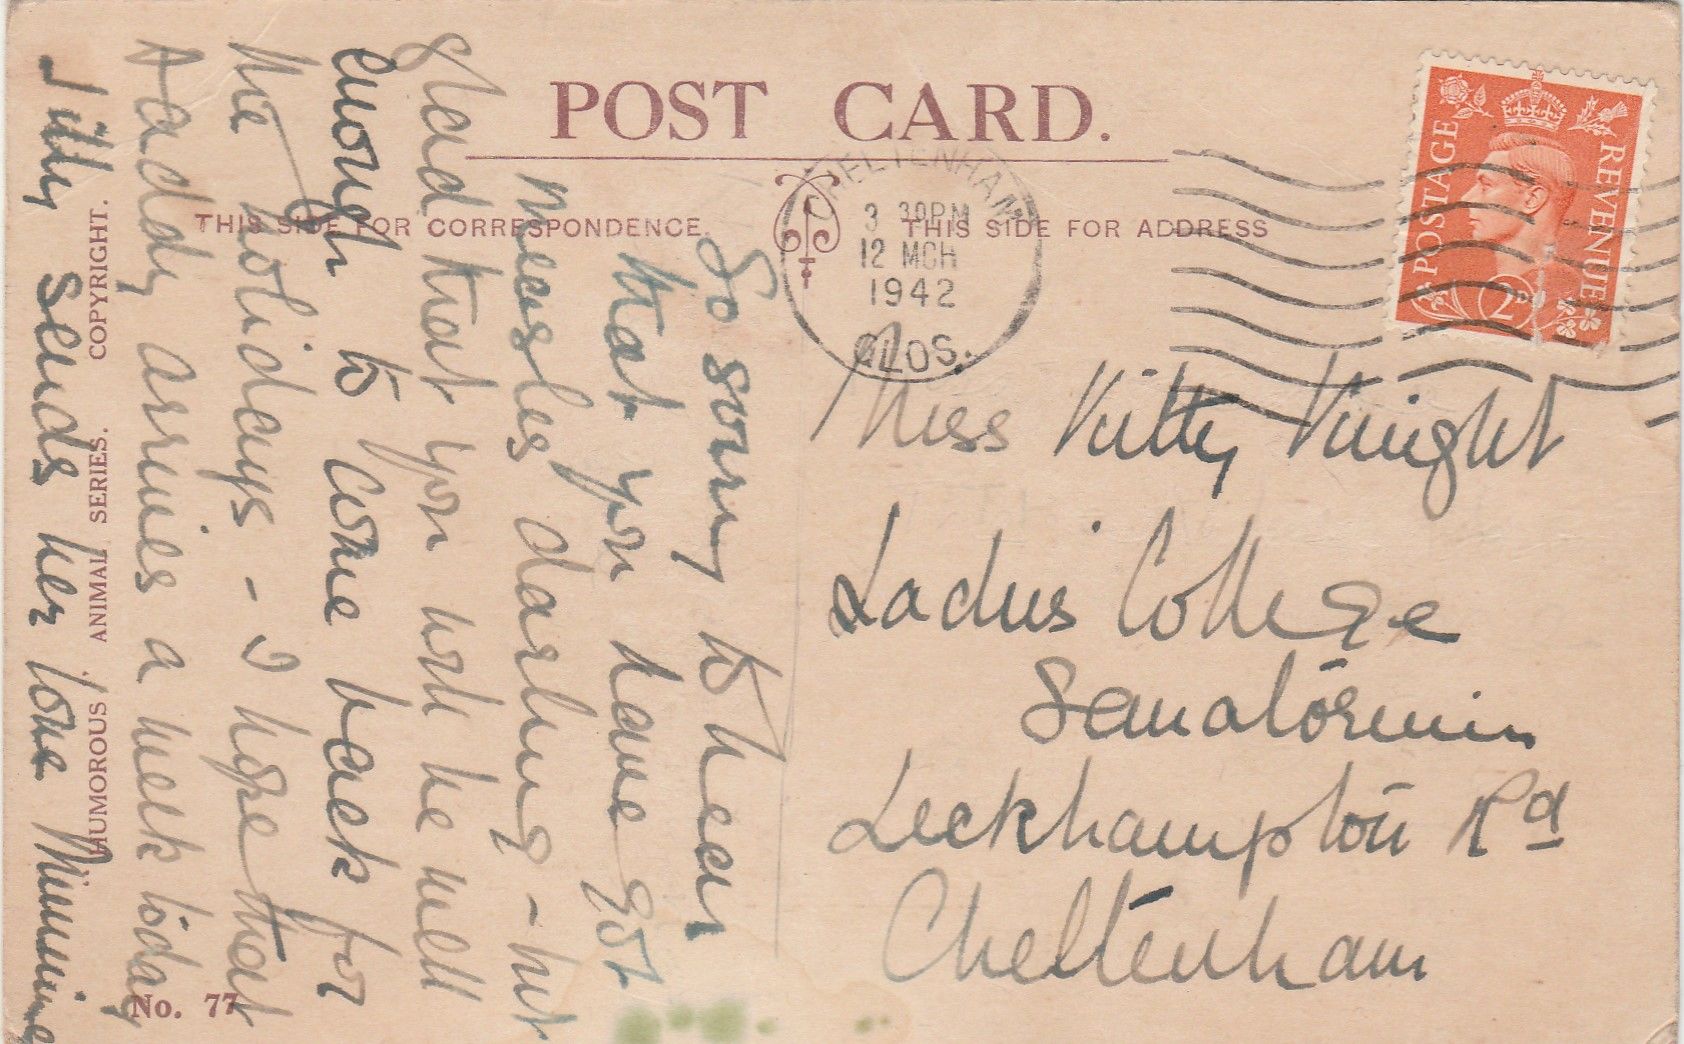 POST CARD.
THIS SIDE FOR CORRESPONDENCE.
THIS SIDE FOR ADDRESS
CHELTENHAM
3 30PM
12 MCH
1942
GLOS.
POSTAGE
REVENUE
2D
Miss Kitty Knight
Ladies College
Sanatorium
Leckhampton Rd
Cheltenham
So sorry to hear
that you have got
measles darling - but
glad that you will be well
enough to come back for
the holidays - I hope that
Daddy arrives a week today
Jilly sends her love Mummie
HUMOROUS ANIMAL SERIES. COPYRIGHT.
No. 77